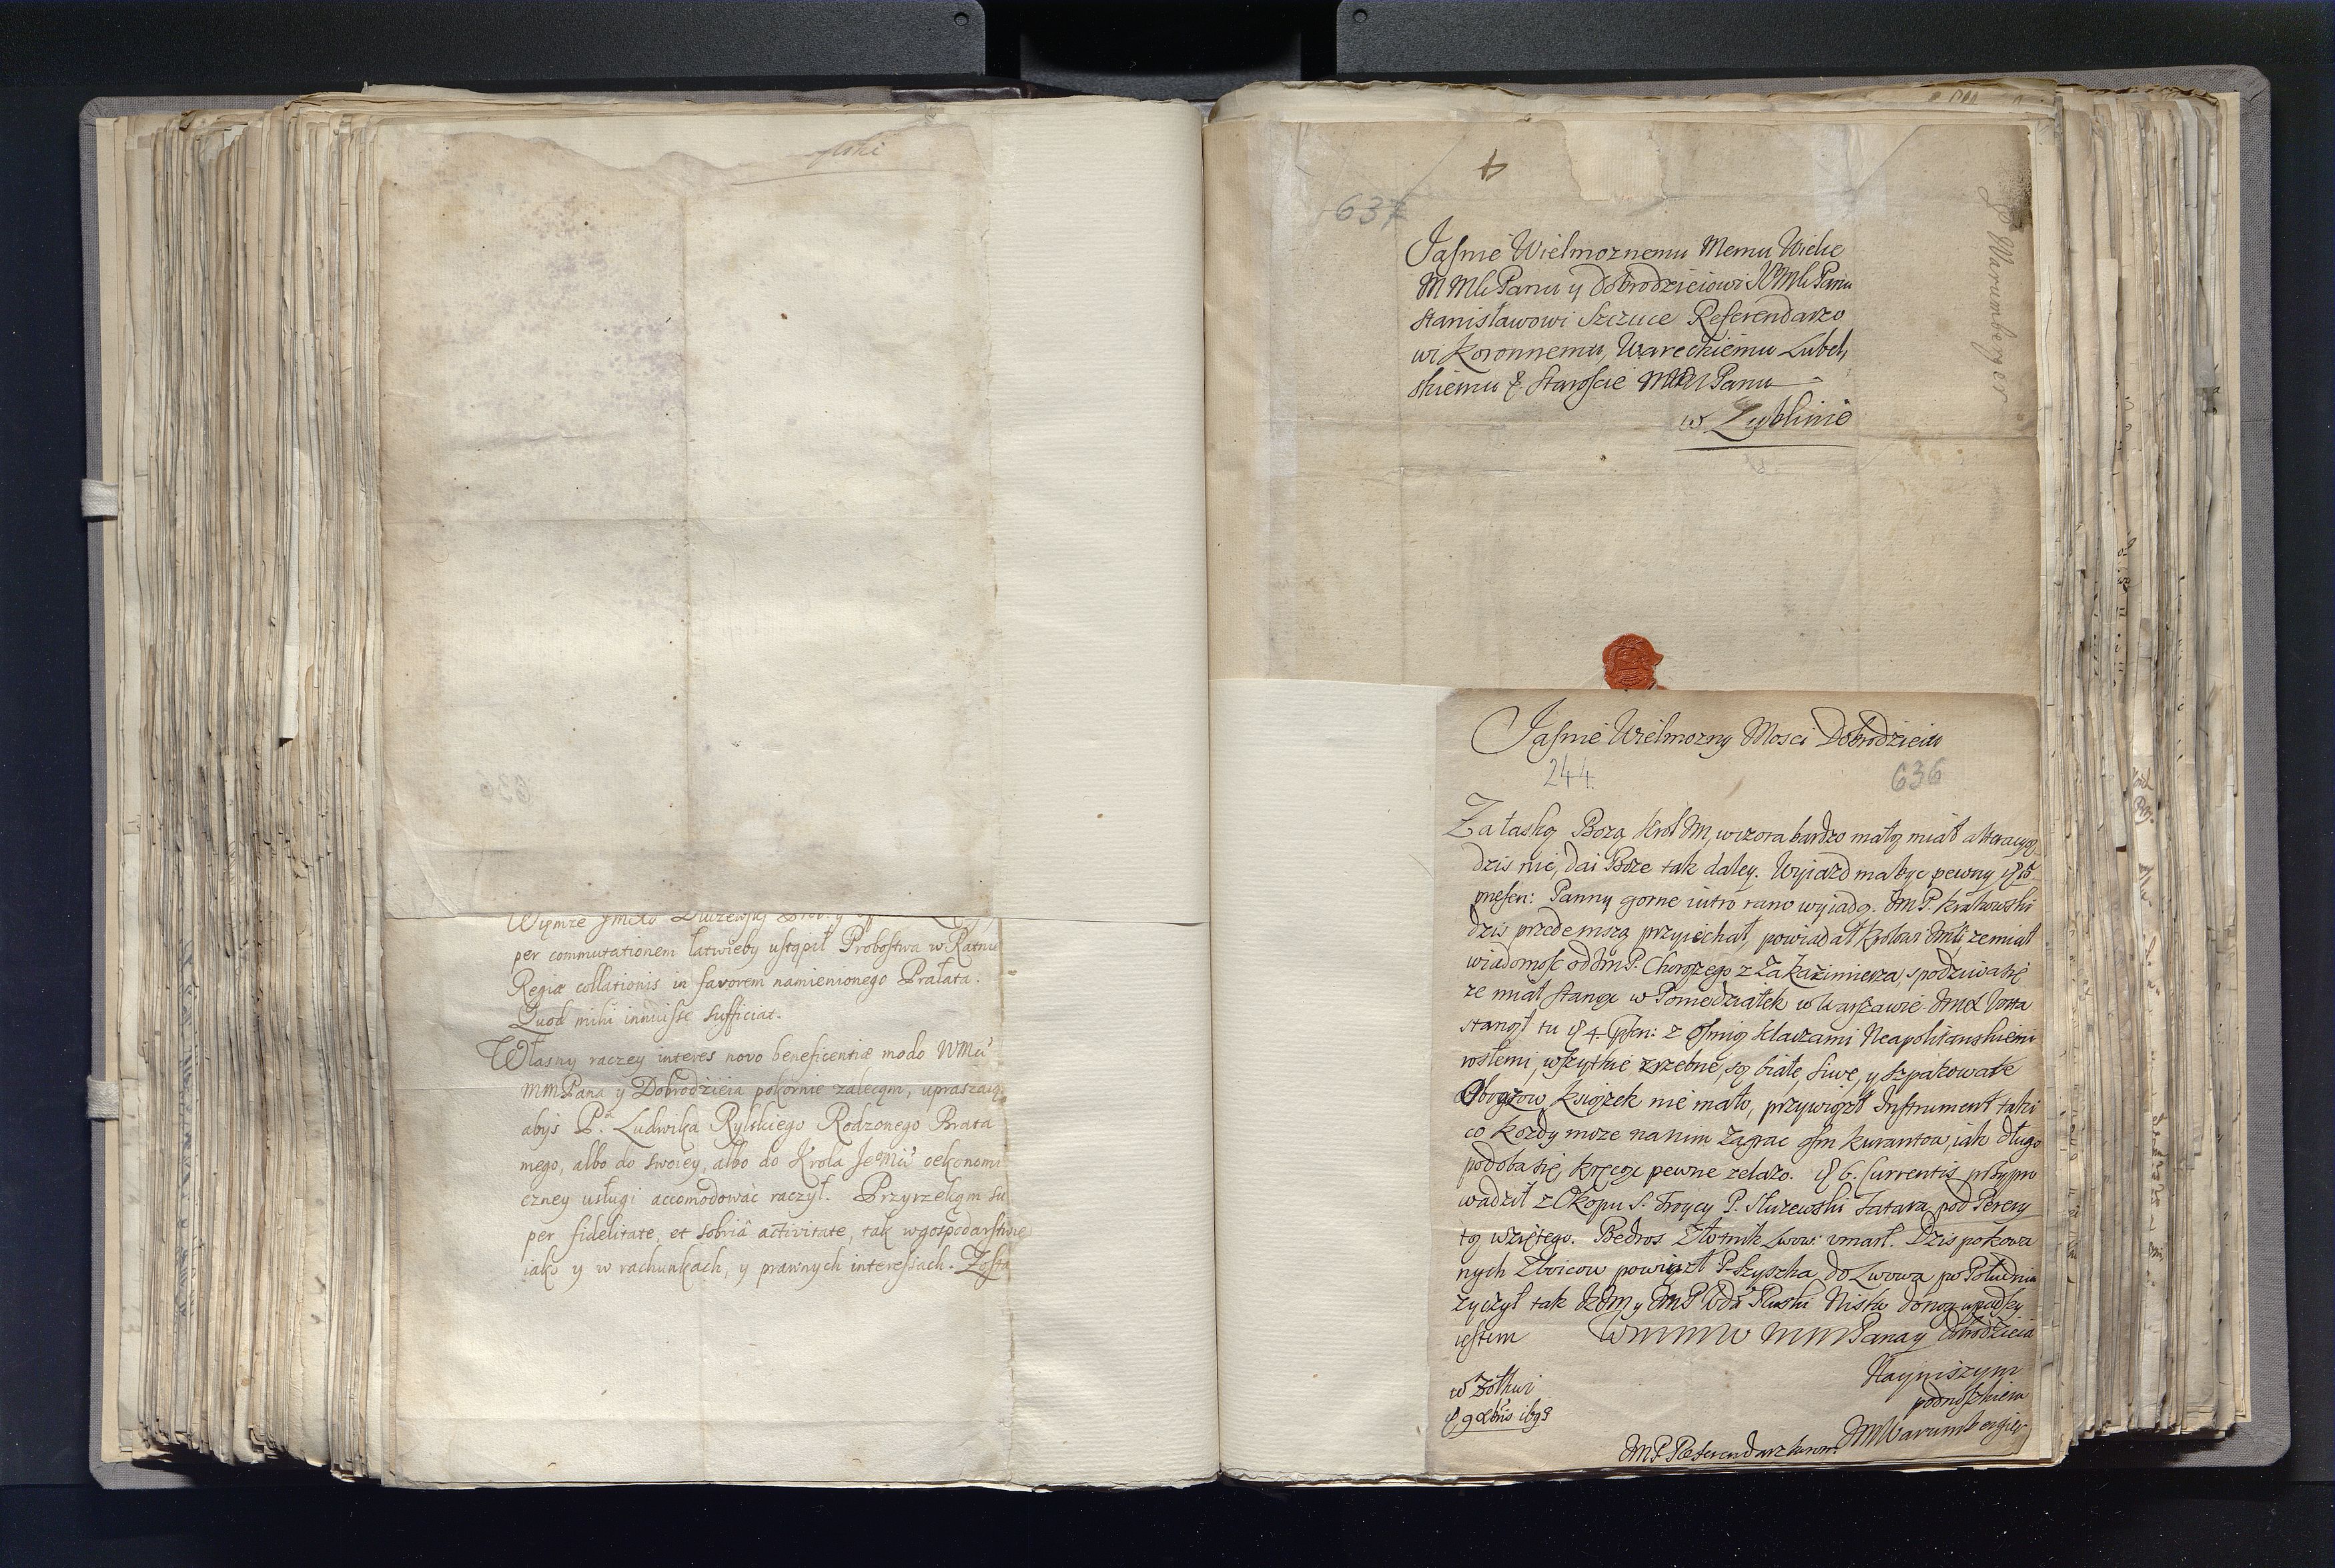 per commutationem łatwieby ustąpił Probostwa w Ratnie
Regiæ collationis in favorem namienionego Prałata.
Quod mihi innuisse sufficiat.
Własny raczey interes novo beneficentiæ modo WMći
MMPana y Dobrodzieia pokornie zalecam, upraszaiąc
abyś P. Ludwika Rylskiego Rodzonego Brata
mego, albo do swoiey, albo do Krola JeMći oekonomi
czney usługi accomodować raczył. Przyrzekam su
per fidelitate, et sobriâ activitate, tak w gospodarstwie
iako y w rachunkach, y prawnych interessach. Zosta
637
Jaśnie Wielmoznemu Memu Wielce
M Mći Panu y Dobrodzieiowi JMći Panu
Stanisławowi Szczuce Referendarzo
wi Koronnemu, Wareckiemu Lubel,
skiemu &. Staroscie Panu
w Lublinie
Warumberger
Jaśnie Wielmozny Mosci Dobrodzieiu
244. 636
Za łaską Bozą Krol JM, wczora bardzo małą miał alteracyą
dzis nie, dai Boze tak daley. Wyiazd ma byc pewny 15
presen: Panny gorne iutro rano wyiadą. JmP. Krakowski
dzis przedemszą przyiechał, powiadał Krolowi JMći ze miał
wiadomosc od JmP. Chorązego z Zakazimierza, spodziwa się
ze miał stanąc w Poniedziałek w Warszawie. JmX Vota
stanął tu 4. Psen: z osmią klaczami Neapolitanskiemi
rosłemi, wszytkie zrzebne, są białe, siwe, y szpakowate
Obrazow, Ksiązek nie mało, przywiozł Instrument taki
co kozdy moze na nim zagrac osm kurantow, iak długo
podoba się, kręcąc pewne zelazo. 6. Currentis przypro
wadził z Okopu S. Troycy P. Sluzewski Tatara pod Perery
tą wziętego. Bedros Złotnik Lwow: umarł. Dzis pokowa
nych Zboicow powiozł P. Szyszka do Lwowa, po Południu
zyczył tak KJM y JmP Wda Ruski Nisko do nog upadszy
iestem WMMW MMPana y Dobrodzieia
Nayniszym
podnoszkiem
w Zołkwi
9 Xbris 1693
JMWarumberger
JmP. Referendarz koron: